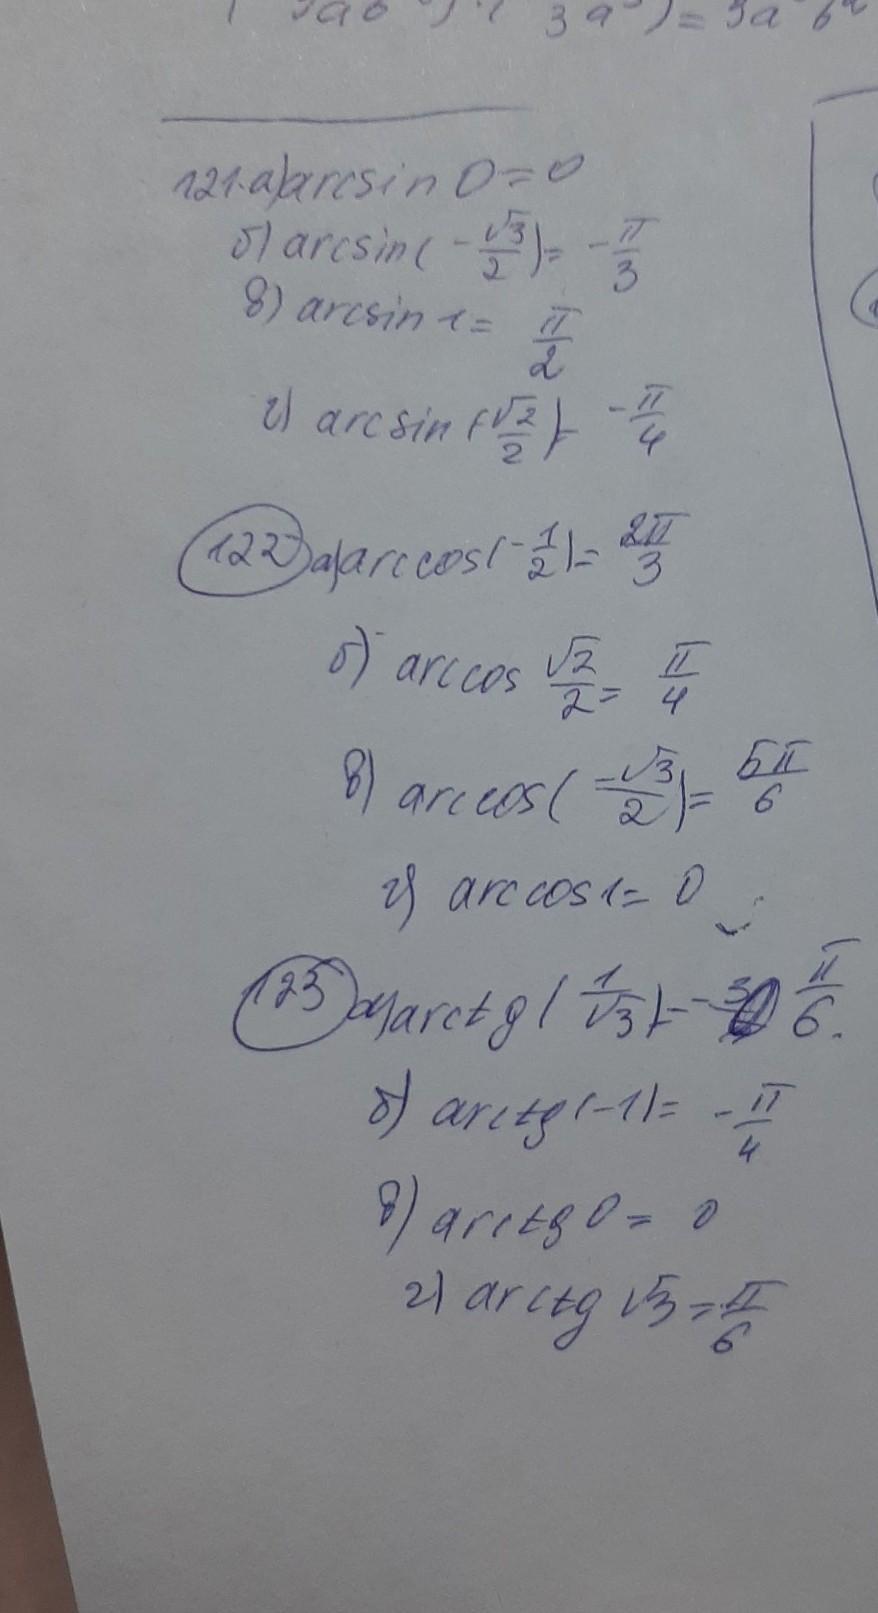 3a 6
121.а) arcsin 0 = 0
б) arcsin(-√3/2) = -π/3
в) arcsin 1 = π/2
г) arcsin(-√2/2) = -π/4
122 а) arccos(-1/2) = 2π/3
б) arccos √2/2 = π/4
в) arccos(-√3/2) = 5π/6
г) arccos 1 = 0
123 а) arctg(1/√3) = - π/6.
б) arctg(-1) = -π/4
в) arctg 0 = 0
г) arctg √3 = π/6